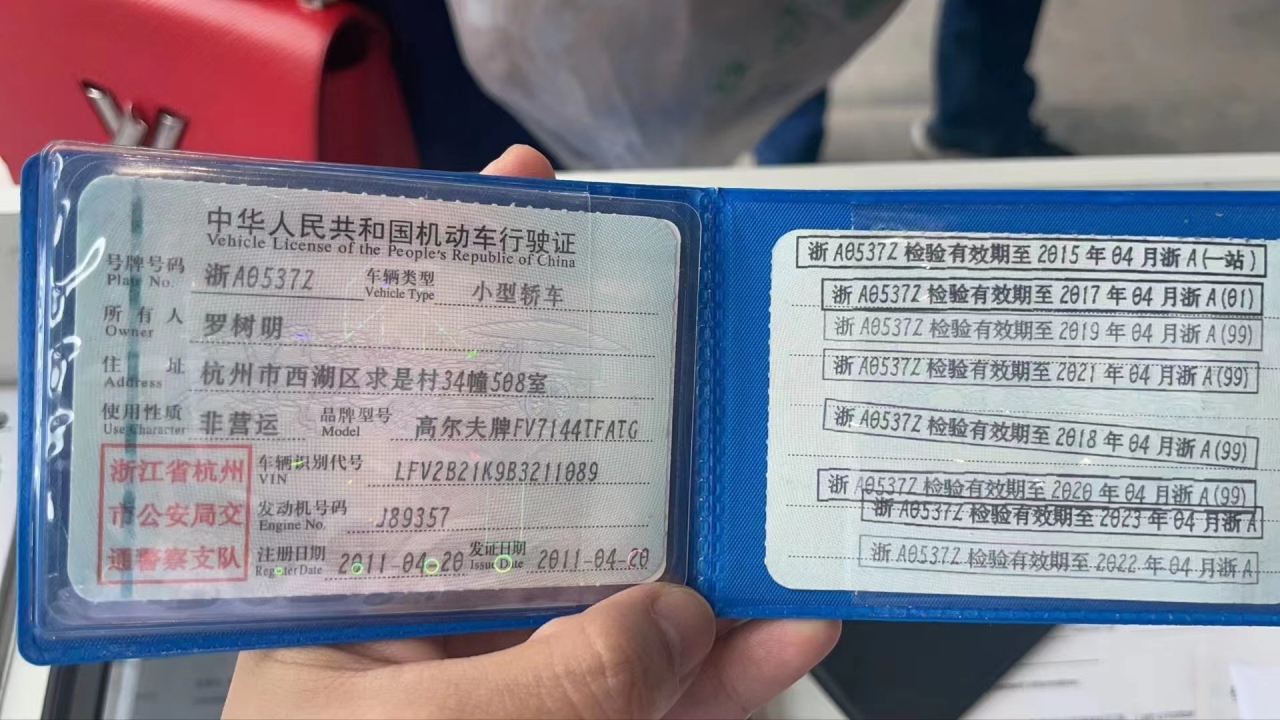 中华人民共和国机动车行驶证
Vehicle License of the People's Republic of China
号牌号码 浙A0537Z 车辆类型 小型轿车
Plate No. Vehicle Type
所有人 罗树明
Owner
住址 杭州市西湖区求是村34幢508室
Address
使用性质 非营运 品牌型号 高尔夫牌FV7144TFATG
Use Character Model
浙江省杭州
市公安局交
通警察支队
车辆识别代号 LFV2B21K9B3211089
VIN
发动机号码 J89357
Engine No.
注册日期 2011-04-20 发证日期 2011-04-20
Register Date Issue Date
浙A0537Z检验有效期至2015年04月浙A(一站)
浙A0537Z检验有效期至2017年04月浙A(01)
浙A0537Z检验有效期至2019年04月浙A(99)
浙A0537Z检验有效期至2021年04月浙A(99)
浙A0537Z检验有效期至2018年04月浙A(99)
浙A0537Z检验有效期至2020年04月浙A(99)
浙A0537Z检验有效期至2023年04月浙A
浙A0537Z检验有效期至2022年04月浙A